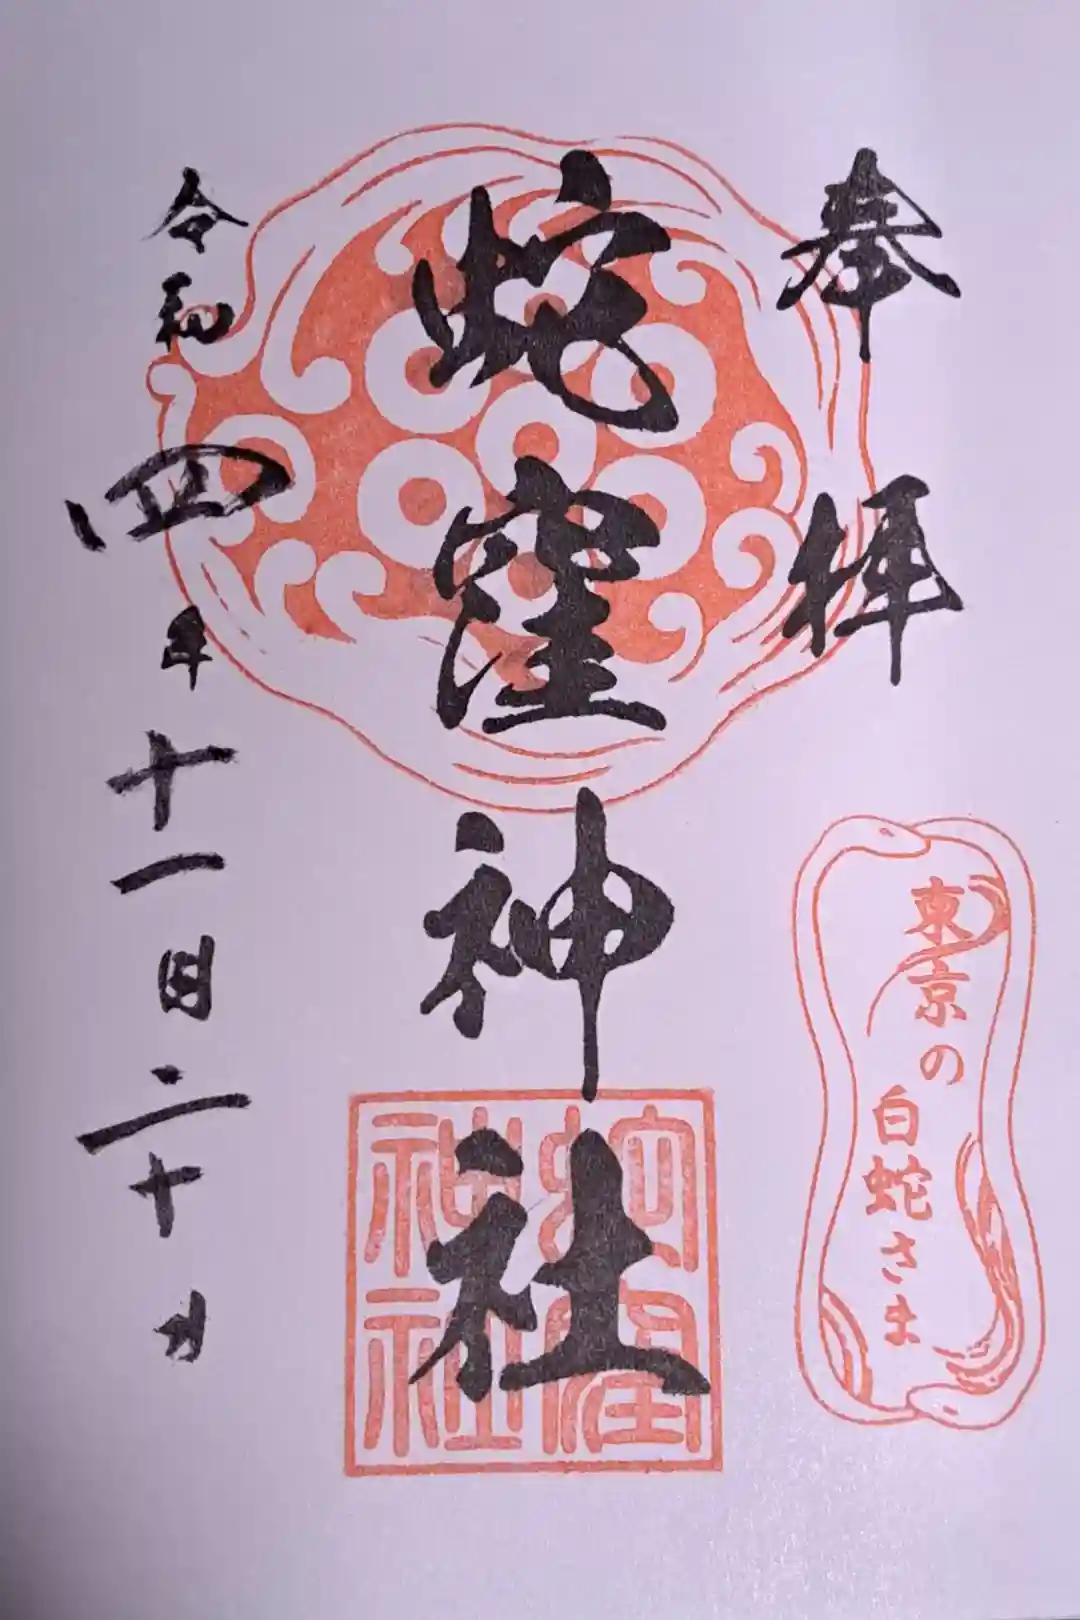 奉拝
蛇窪神社
令和四年十一月二十日
蛇窪
神社
東京の
白蛇さま